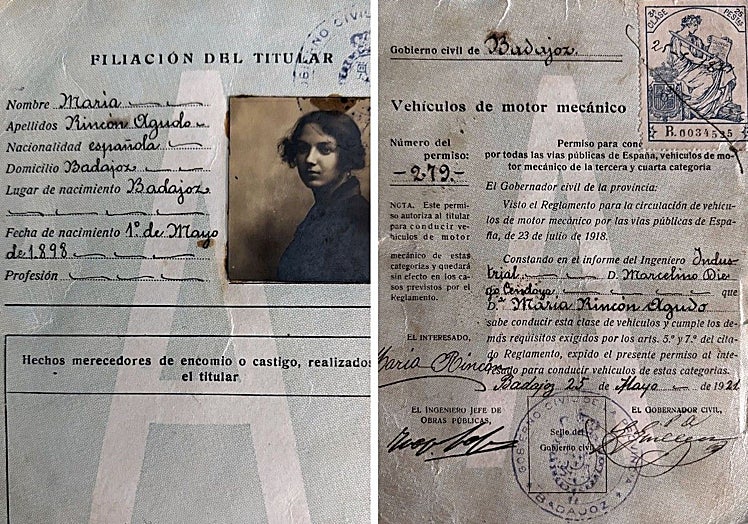 FILIACIÓN DEL TITULAR
Nombre María
Apellidos Rincón Agudo
Nacionalidad española
Domicilio Badajoz
Lugar de nacimiento Badajoz
Fecha de nacimiento 1º de Mayo
de 1.898
Profesión
Hechos merecedores de encomio o castigo, realizados
el titular
Gobierno civil de Badajoz
Vehículos de motor mecánico
Número del
permiso:
-279.-
NOTA. Este permi-
so autoriza al titular
para conducir ve-
hículos de motor
mecánico de estas
categorías y quedará
sin efecto en los ca-
sos previstos por el
Reglamento.
EL INTERESADO,
María Rincón
EL INGENIERO JEFE DE
OBRAS PÚBLICAS,
3ª CLASE
PESETAS
R.0034535
Permiso para con
por todas las vías públicas de España, vehículos de mo-
tor mecánico de la tercera y cuarta categoría
El Gobernador civil de la provincia:
Visto el Reglamento para la circulación de vehícu-
los de motor mecánico por las vías públicas de Espa-
ña, de 23 de julio de 1918.
Constando en el informe del Ingeniero Indus
trial, D. Marcelino Die
go Cendoya que
D.ª María Rincón Agudo
sabe conducir esta clase de vehículos y cumple los de-
más requisitos exigidos por los arts. 5.º y 7.º del cita-
do Reglamento, expido el presente permiso al inte-
resado para conducir vehículos de estas categorías.
Badajoz 25 de Mayo de 192
EL GOBERNADOR CIVIL,
Sello del
Gobierno civil
GOBIERNO CIVIL DE LA
BADAJOZ